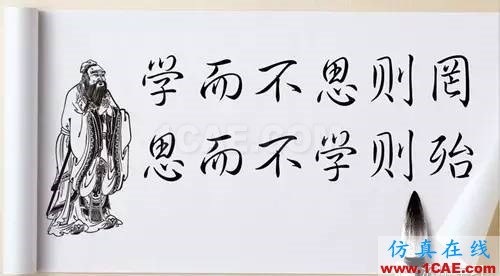 学而不思则罔
思而不学则殆
1CAE.COM
仿真在线
www.1CAE.com